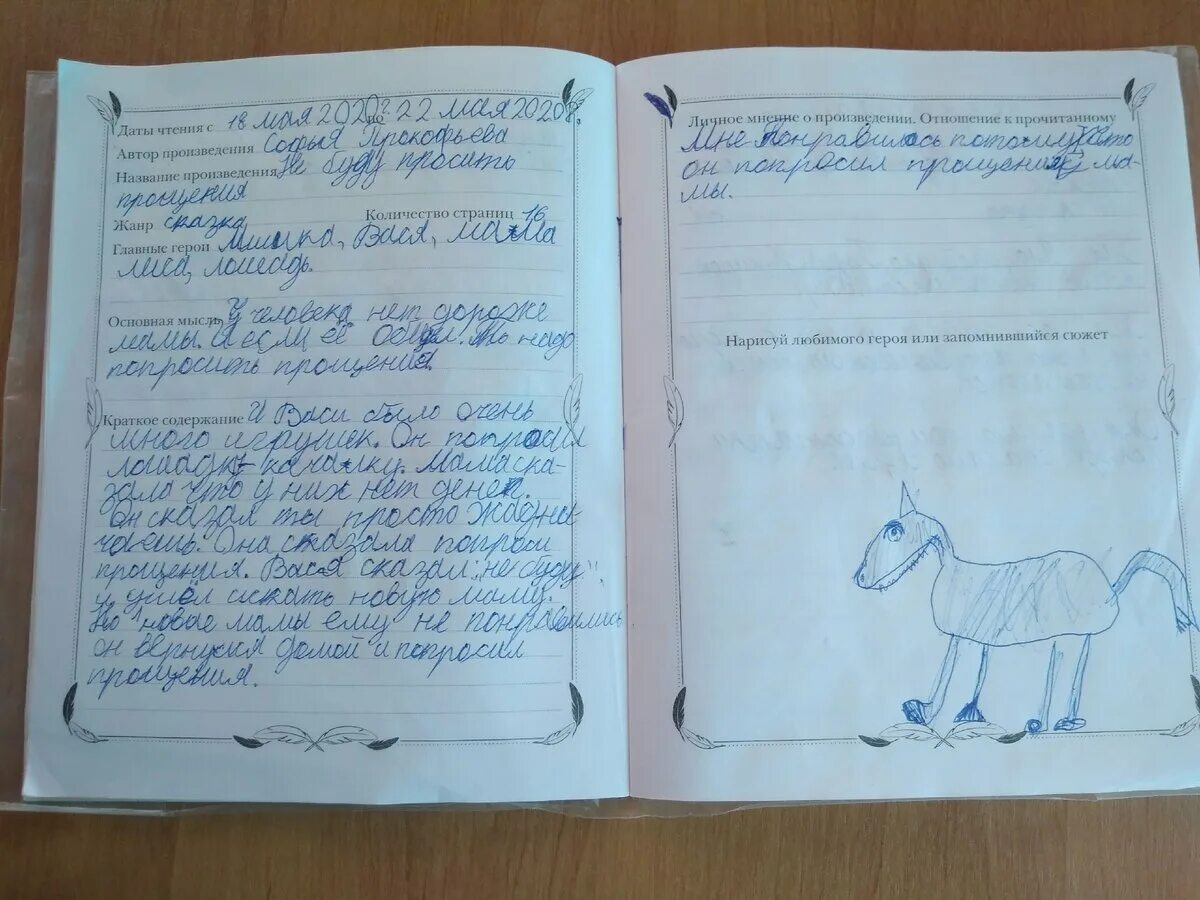 Даты чтения с 18 мая 2020г. по 22 мая 2020г.
Автор произведения Софья Прокофьева
Название произведения Не буду просить
прощения
Жанр сказка Количество страниц 16
Главные герои Мишка, Вася, мама
лиса, лошадь.
Основная мысль У человека нет дороже
мамы. а если её обидел. то надо
попросить прощения.
Краткое содержание У Васи было очень
много игрушек. Он попросил
лошадку-качалку. Мама ска-
зала что у них нет денег.
Он сказал ты просто жадни
чаешь. Она сказала попроси
прощения. Вася сказал: "не буду"
и ушёл искать новую маму.
Но новые мамы ему не понравились
он вернулся домой и попросил
прощения.
Личное мнение о произведении. Отношение к прочитанному
Мне понравилось потому что
он попросил прощения у ма-
мы.
Нарисуй любимого героя или запомнившийся сюжет